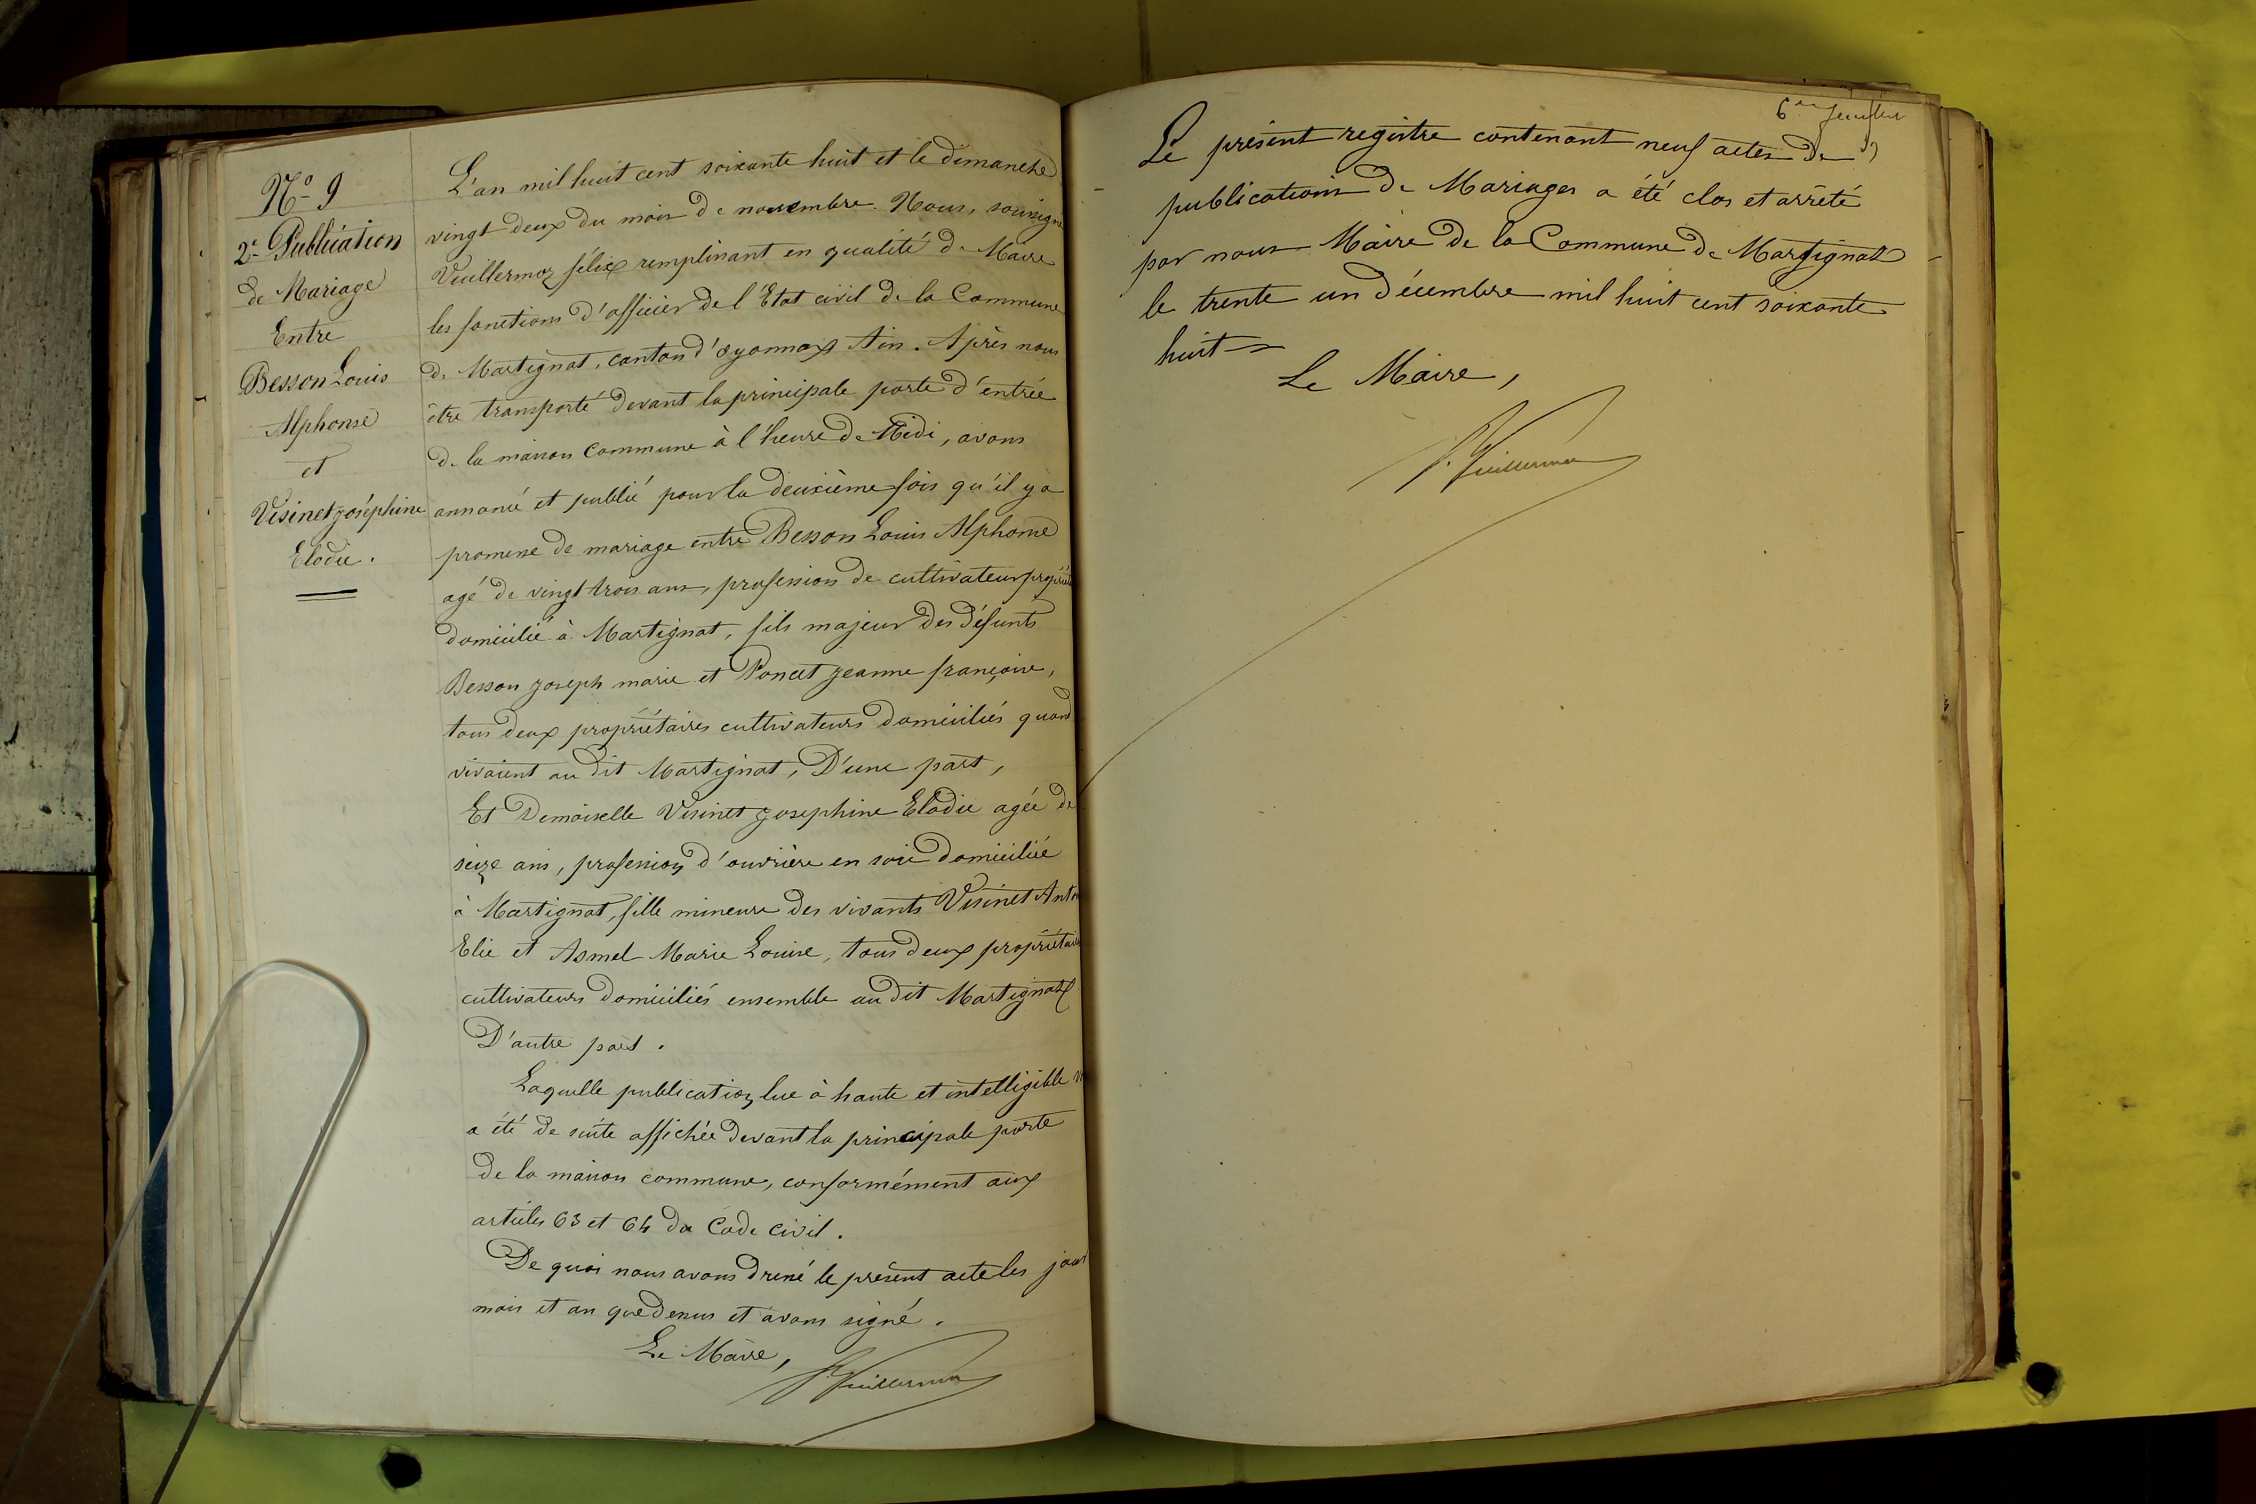 N.o 9
2.e Publication
de Mariage
Entre
Besson Louis
Alphonse
et
Visinet joséphine
Elodie.
L'an mil huit cent soixante huit et le dimanche
vingt deux du mois de novembre. Nous, soussigné
Vuillermoz félix remplissant en qualité de Maire
les fonctions d'officier de l'Etat civil de la Commune
de Martignat, canton d'oyonnax Ain. Après nous
être transporté devant la principale porte d'entrée
de la maison commune à l'heure de Midi, avons
annoncé et publié pour la deuxième fois qu'il y a
promesse de mariage entre Besson Louis Alphonse
agé de vingt trois ans, profession de cultivateur
domicilié à Martignat, fils majeur des défunts
Besson joseph marie et Poncet jeanne françoise,
tous deux propriétaires cultivateurs domiciliés quand
vivaient au dit Martignat, D'une part,
Et Demoiselle Visinet josephine Elodie agée de
seize ans, profession d'ouvrière en soie domiciliée
à Martignat, fille mineure des vivants Visinet
Elie et Asmel Marie Louise, tous deux propriétai
cultivateurs domiciliés ensemble au dit Martignat
D'autre part.
Laquelle publication lue à haute et intelligible
a été de suite affichée devant la principale porte
de la maison commune, conformément aux
articles 63 et 64 du Code civil.
De quoi nous avons dressé le présent acte les jour
mois et an que dessus et avons signé.
Le Maire,
f. Vuillermoz
6.me feuillet
Le présent registre contenant neuf actes de
publications de Mariages a été clos et arrêté
par nous Maire de la Commune de Martignat
le trente un décembre mil huit cent soixante
huit
Le Maire,
f. Vuillermoz